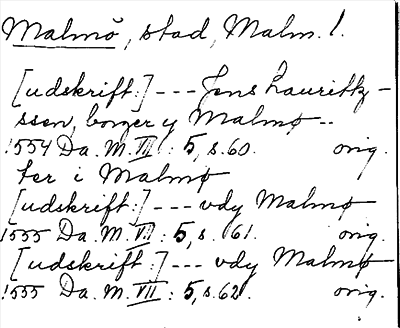 Malmö, stad, Malm. l.
[udskrift:] --- Jens Laurittz-
ssen, borger y Malmø --
1554 Da. M. VII : 5, s. 60. orig.
ter i Malmø
[udskrift:] --- vdy Malmø
1555 Da. M. VII : 5, s. 61. orig.
[udskrift:] --- vdy Malmø
1555 Da. M. VII : 5, s. 62. orig.